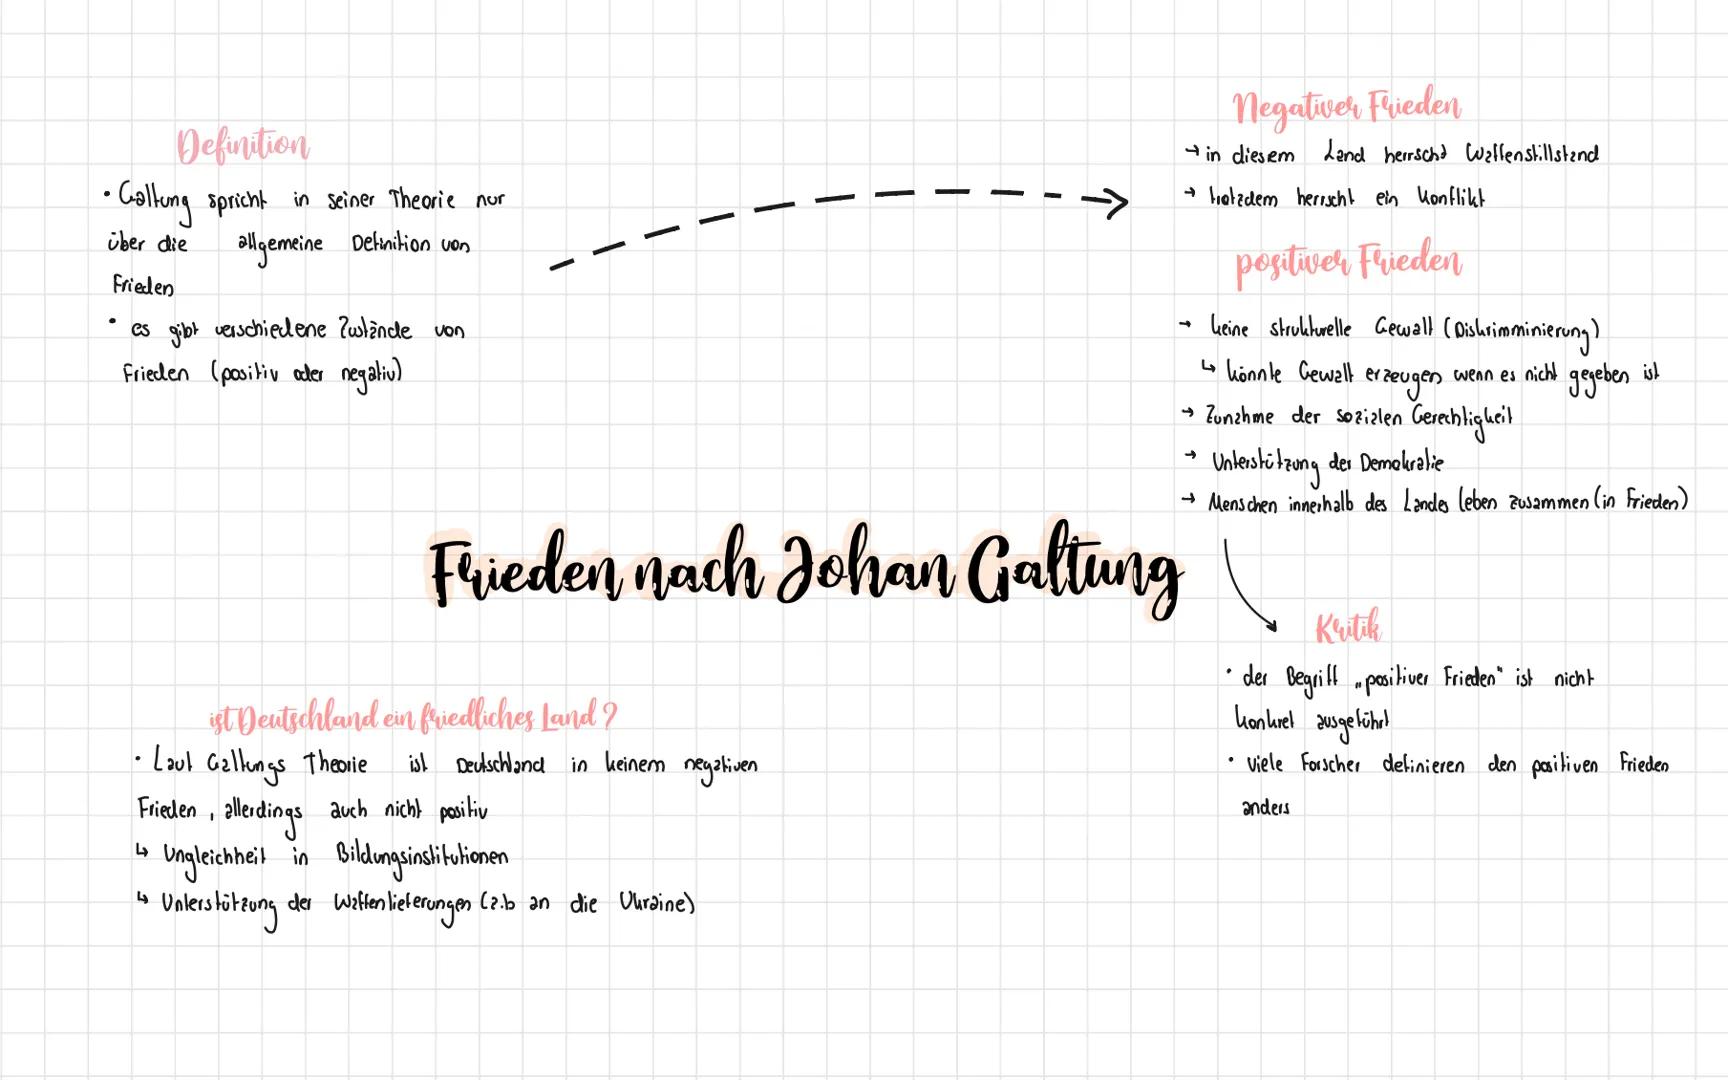 Definition
• Galtung spricht in seiner Theorie nur
über die allgemeine Definition von
Frieden
• es gibt verschiedene Zustände von
Frieden (positiv oder negativ)
Negativer Frieden
→ in diesem Land herrscht Waffenstillstand
→ trotzdem herrscht ein Konflikt
positiver Frieden
→ keine strukturelle Gewalt (Diskrimminierung)
↳ könnte Gewalt erzeugen wenn es nicht gegeben ist
→ Zunahme der sozialen Gerechtigkeit
→ Unterstützung der Demokratie
→ Menschen innerhalb des Landes leben zusammen (in Frieden)
Frieden nach Johan Galtung
Kritik
• der Begriff „positiver Frieden" ist nicht
konkret ausgeführt
• viele Forscher definieren den positiven Frieden
anders
ist Deutschland ein friedliches Land?
• Laut Galtungs Theorie ist Deutschland in keinem negativen
Frieden, allerdings auch nicht positiv
↳ Ungleichheit in Bildungsinstitutionen
↳ Unterstützung der Waffenlieferungen (z.b an die Ukraine)